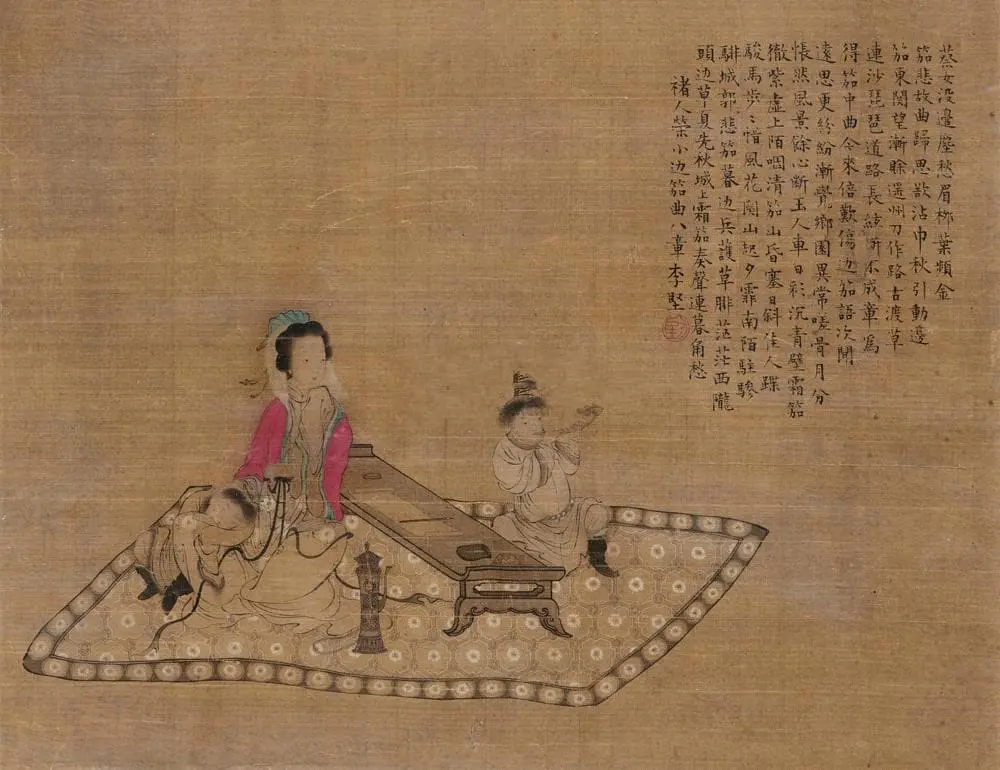 蔡女没邊塵愁眉柳葉顰金
笳悲故曲歸思欲沾巾秋引動邊
笳東関望漸賒還州刀作路古渡草
連沙琵琶道路長絃斷不成章為
得笳中曲今來倍歎傷边笳語次聞
遠思更紛紛漸覺鄉園異常嗟骨月分
悵然風景餘心斷玉人車日彩沉青壁霜笳
徹紫虛上陌咽清笳山昏塞日斜佳人蹀
駿馬步〻惜風花関山起夕霏南陌駐驂
騑城郭悲笳暮边兵護草腓茫茫西隴
頭边草夏先秋城上霜笳奏聲連暮角愁
褚人榮小边笳曲八章李堅